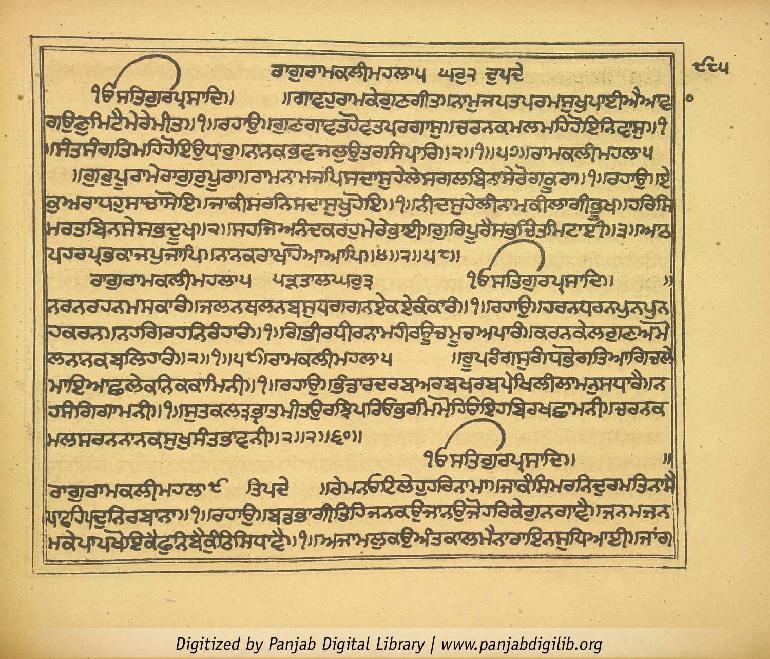 ੯੮੫
ਰਾਗੁਰਾਮਕਲੀਮਹਲਾ੫ ਘਰੁ੨ ਦੁਪਦੇ
ੴਸਤਿਗੁਰਪ੍ਰਸਾਦਿ॥ ॥ਗਾਵਹੁਰਾਮਕੇਗੁਣਗੀਤ॥ਨਾਮੁਜਪਤਪਰਮਸੁਖੁਪਾਈਐਆਵਾ
ਗਉਣੁਮਿਟੈਮੇਰੇਮੀਤ॥੧॥ਰਹਾਉ॥ਗੁਣਗਾਵਤਹੋਵਤਪਰਗਾਸੁ॥ਚਰਨਕਮਲਮਹਿਹੋਇਨਿਵਾਸੁ॥੧
॥ਸੰਤਸੰਗਤਿਮਹਿਹੋਇਉਧਾਰੁ॥ਨਾਨਕਭਵਜਲੁਉਤਰਸਿਪਾਰਿ॥੨॥੧॥੫੭॥ਰਾਮਕਲੀਮਹਲਾ੫
॥ਗੁਰੁਪੂਰਾਮੇਰਾਗੁਰੁਪੂਰਾ॥ਰਾਮਨਾਮਜਪਿਸਦਾਸੁਹੇਲੇਸਗਲਬਿਨਾਸੇਰੋਗਕੂਰਾ॥੧॥ਰਹਾਉ॥ਏ
ਕੁਅਰਾਧਹੁਸਾਚਾਸੋਇ॥ਜਾਕੀਸਰਨਿਸਦਾਸੁਖੁਹੋਇ॥੧॥ਨੀਦਸੁਹੇਲੀਨਾਮਕੀਲਾਗੀਭੂਖ॥ਹਰਿਸਿ
ਮਰਤਬਿਨਸੇਸਭਦੂਖ॥੨॥ਸਹਜਿਅਨੰਦਕਰਹੁਮੇਰੇਭਾਈ॥ਗੁਰਿਪੂਰੈਸਭਚਿੰਤਮਿਟਾਈ॥੩॥ਆਠ
ਪਹਰਪ੍ਰਭਕਾਜਪੁਜਾਪਿ॥ਨਾਨਕਰਾਖਾਹੋਆਆਪਿ॥੪॥੨॥੫੮॥
ਰਾਗੁਰਾਮਕਲੀਮਹਲਾ੫ ਪੜਤਾਲਘਰੁ੩ ੴਸਤਿਗੁਰਪ੍ਰਸਾਦਿ॥ ॥
ਨਰਨਰਹਨਮਸਕਾਰੰ॥ਜਲਨਥਲਨਬਸੁਧਗਗਨਏਕਏਕੰਕਾਰੰ॥੧॥ਰਹਾਉ॥ਹਰਨਧਰਨਪੁਨਪੁਨ
ਹਕਰਨ॥ਨਹਗਿਰਹਨਿਰੰਹਾਰੰ॥੧॥ਗੰਭੀਰਧੀਰਨਾਮਹੀਰਊਚਮੂਚਅਪਾਰੰ॥ਕਰਨਕੇਲਗੁਣਅਮੋ
ਲਨਾਨਕਬਲਿਹਾਰੰ॥੨॥੧॥੫੯॥ਰਾਮਕਲੀਮਹਲਾ੫ ॥ਰੂਪਰੰਗਸੁਗੰਧਭੋਗਤਿਆਗਿਚਲੇ
ਮਾਇਆਛਲੇਕਨਿਕਕਾਮਿਨੀ॥੧॥ਰਹਾਉ॥ਭੰਡਾਰਦਰਬਅਰਬਖਰਬਪੇਖਿਲੀਲਾਮਨੁਸਧਾਰੈ॥ਨ
ਹਸੰਗਿਗਾਮਨੀ॥੧॥ਸੁਤਕਲਤ੍ਰਭ੍ਰਾਤਮੀਤਉਰਝਿਪਰਿਓਭਰਮਿਮੋਹਿਓਇਹਬਿਰਖਛਾਮਨੀ॥ਚਰਨਕ
ਮਲਸਰਨਨਾਨਕਸੁਖੁਸੰਤਭਾਵਨੀ॥੨॥੨॥੬੦॥
ੴਸਤਿਗੁਰਪ੍ਰਸਾਦਿ॥ ॥
ਰਾਗੁਰਾਮਕਲੀਮਹਲਾ੯ ਤਿਪਦੇ ॥ਰੇਮਨਓਟਲੇਹੁਹਰਿਨਾਮਾ॥ਜਾਕੈਸਿਮਰਨਿਦੁਰਮਤਿਨਾਸੈ
ਪਾਵਹਿਪਦੁਨਿਰਬਾਨਾ॥੧॥ਰਹਾਉ॥ਬਡਭਾਗੀਤਿਹਿਜਨਕਉਜਾਨਉਜੋਹਰਿਕੇਗੁਨਗਾਵੈ॥ਜਨਮਜਨ
ਮਕੇਪਾਪਖੋਇਕੈਫੁਨਿਬੈਕੁੰਠਿਸਿਧਾਵੈ॥੧॥ਅਜਾਮਲੁਕਉਅੰਤਕਾਲਮੈਨਾਰਾਇਨਸੁਧਿਆਈ॥ਜਾਂਗ
Digitized by Panjab Digital Library | www.panjabdigilib.org